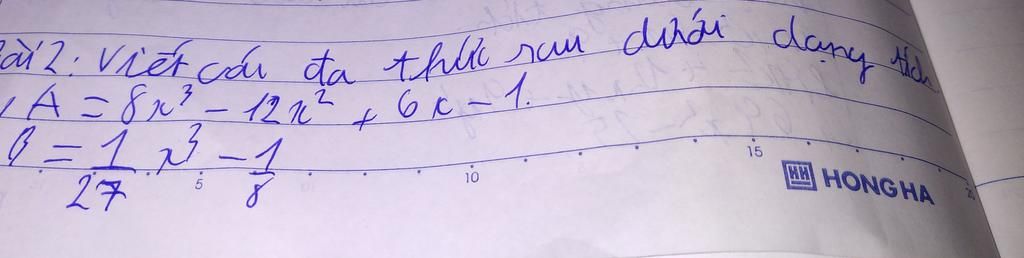 ài 2: Viết các đa thức sau dưới dạng tích
, A = 8x³ - 12x² + 6x - 1.
B = 1/27 x³ - 1/8
5 10 15 20
HH HONG HA